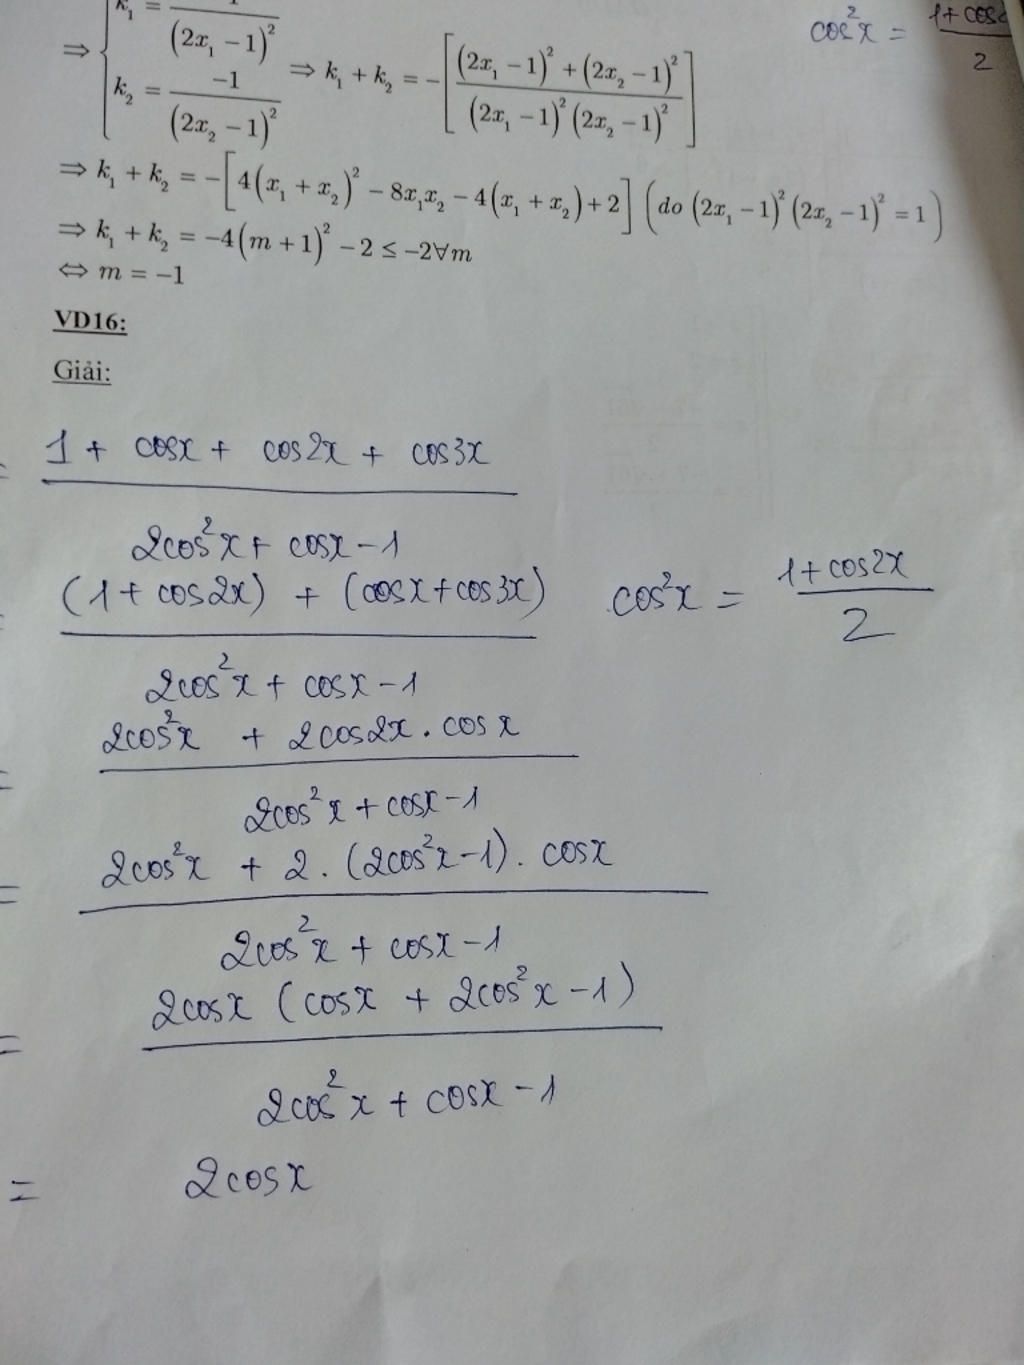 cos²x = 1+cos / 2
⇒ { k₁ = / (2x₁ − 1)²
k₂ = −1 / (2x₂ − 1)² ⇒ k₁ + k₂ = −[((2x₁ − 1)² + (2x₂ − 1)²) / ((2x₁ − 1)² (2x₂ − 1)²)]
⇒ k₁ + k₂ = −[4(x₁ + x₂)² − 8x₁x₂ − 4(x₁ + x₂) + 2] (do (2x₁ − 1)² (2x₂ − 1)² = 1)
⇒ k₁ + k₂ = −4(m + 1)² − 2 ≤ −2∀m
⇔ m = −1
VD16:
Giải:
= 1 + cosx + cos2x + cos3x
2cos²x + cosx − 1
= (1 + cos2x) + (cosx + cos3x)
2cos²x + cosx − 1
cos²x = 1 + cos2x / 2
= 2cos²x + 2cos2x . cosx
2cos²x + cosx − 1
= 2cos²x + 2 . (2cos²x − 1) . cosx
2cos²x + cosx − 1
= 2cosx (cosx + 2cos²x − 1)
2cos²x + cosx − 1
= 2cosx